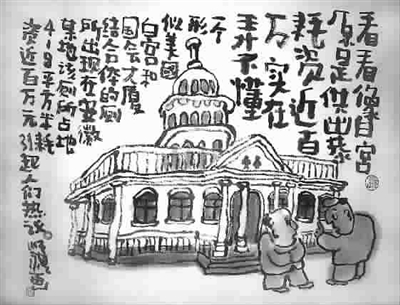 看看像白宫
原是供出恭
耗资近百
万实在
弄不懂
一个形
似美國
白宫和
国会大厦
结合体的厕
所出现在安徽
某地该厕所占地
4-8平方米耗
资近百万元引起人们的热议